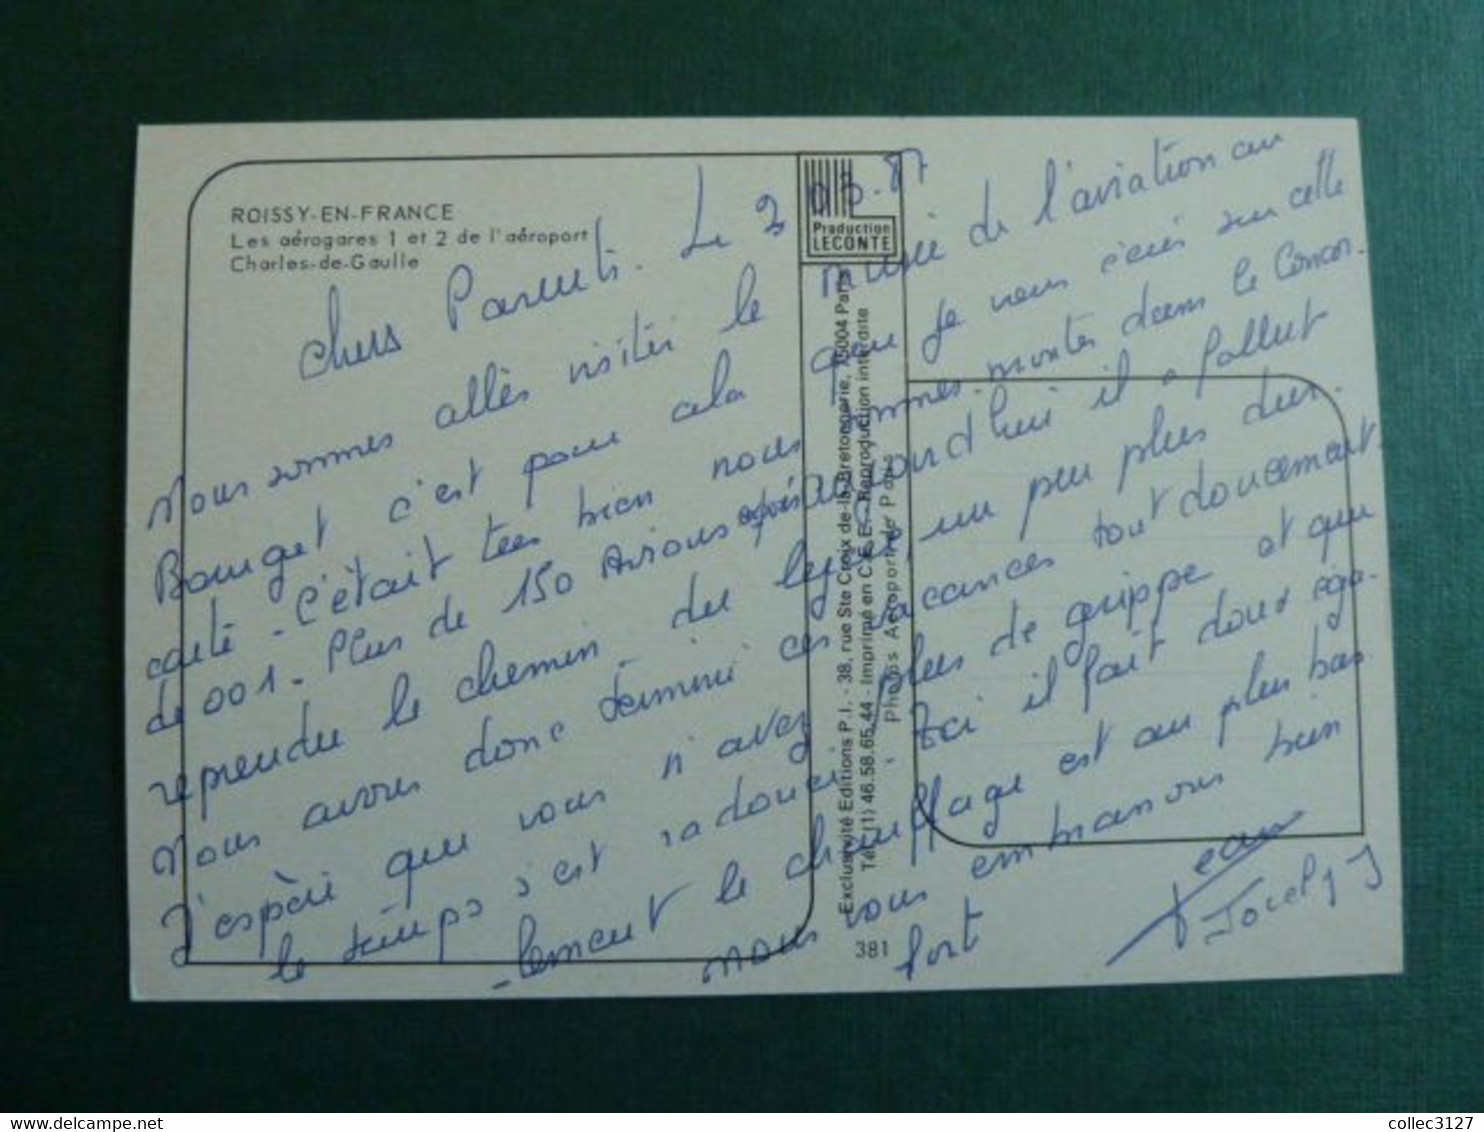 ROISSY-EN-FRANCE
Les aérogares 1 et 2 de l'aéroport
Charles-de-Gaulle
Production
LECONTE
Le 2 03.87
Chers Parents.
Nous sommes allés visiter le musée de l'aviation au
Bourget c'est pour cela que je vous écris sur cette
carte. C'était très bien nous sommes montés dans le Concor.
de 001. Plus de 150 Avions après Aujourd'hui il a fallut
reprendre le chemin du lycée, un peu plus dur.
Nous avons donc terminé ces vacances tout doucement.
J'espère que vous n'avez plus de grippe et que
le temps s'est radouci. Ici il fait doux éga-
-lement le chauffage est au plus bas.
nous vous embrassons bien
fort
Jean
Jocelyn
Exclusivité Editions P.I. - 38, rue Ste Croix de-la-Bretonnerie, 75004 Paris
Tél. (1) 46.58.65.44 - Imprimé en C.E.E. - Reproduction interdite
Photos Aéroport de Paris
381
collec3127